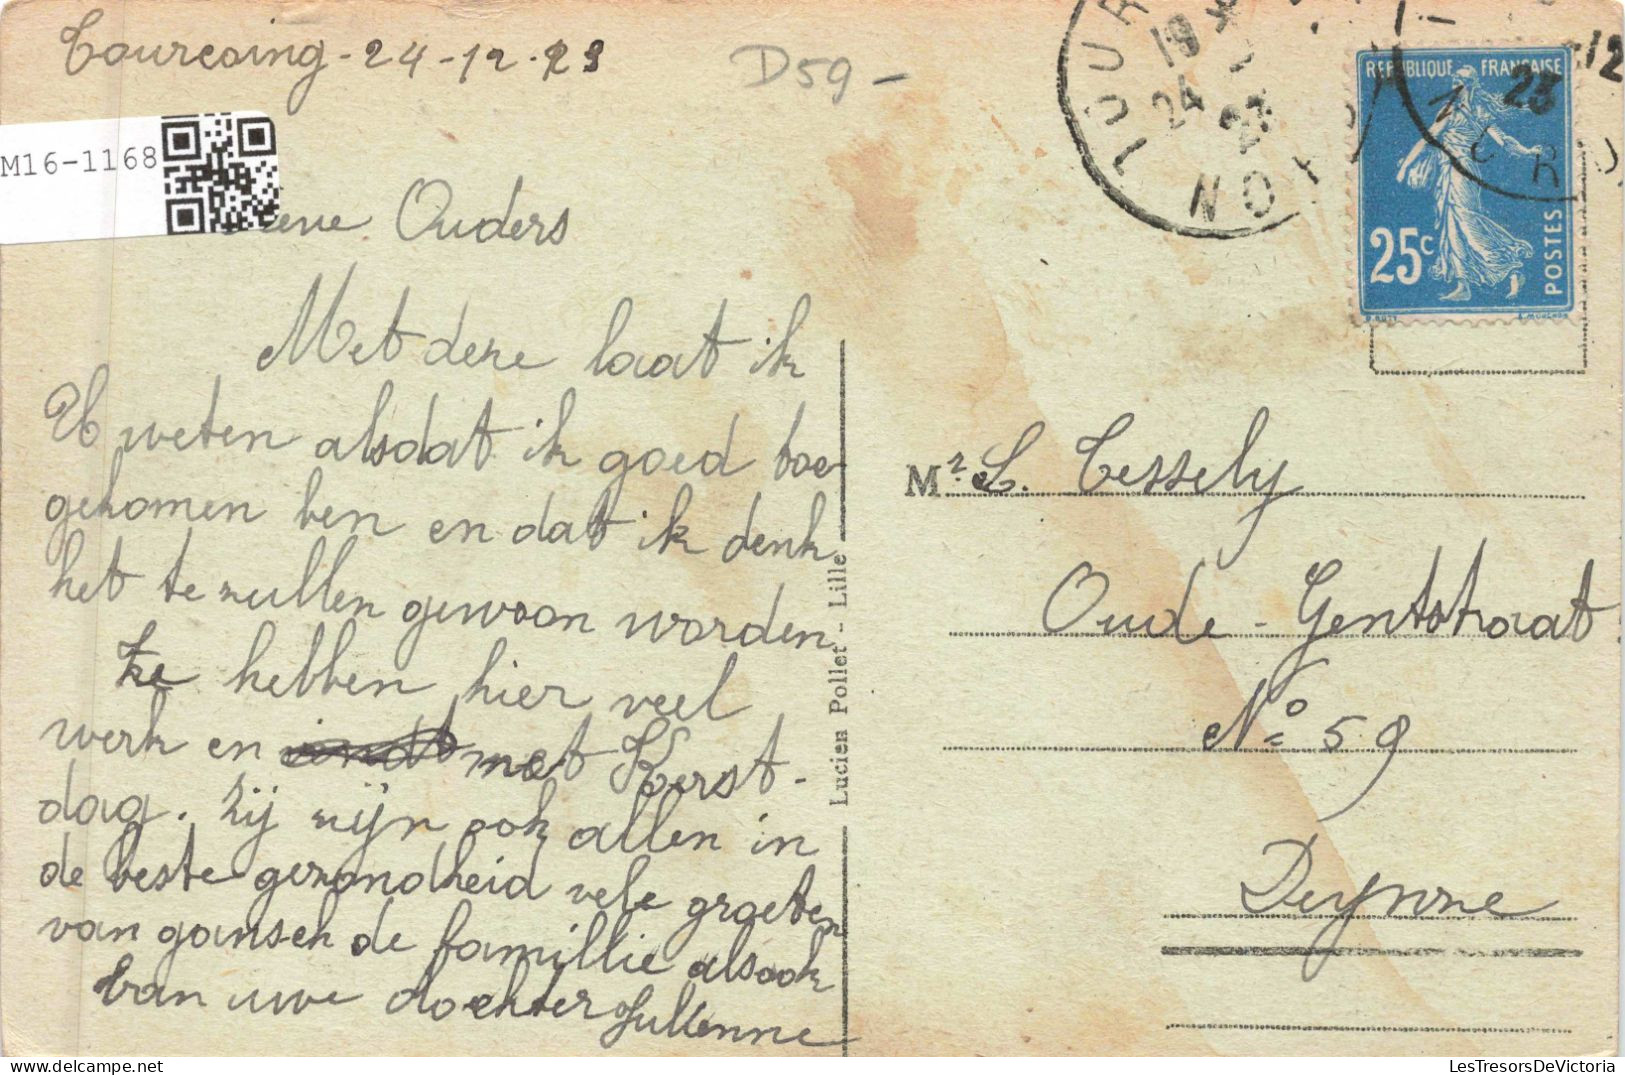 Tourcoing - 24 - 12 - 23
D59 -
M16-1168
Ouders
Met deze laat ik
U weten alsdat ik goed toe
gekomen ben en dat ik denk
het te zullen gewoon worden
Ze hebben hier veel
werk en met Kerst-
dag. Zij zijn ook allen in
de beste gezondheid vele groeten
van gansch de famillie alsook
van uwe dochter Julienne
Lucien Pollet - Lille
TOUR
19
24
23
NO
REPUBLIQUE FRANÇAISE
25c
POSTES
-12
23
Mr. L. Cessely
Oude - Gentstraat
No 59
Deynze
LesTresorsDeVictoria